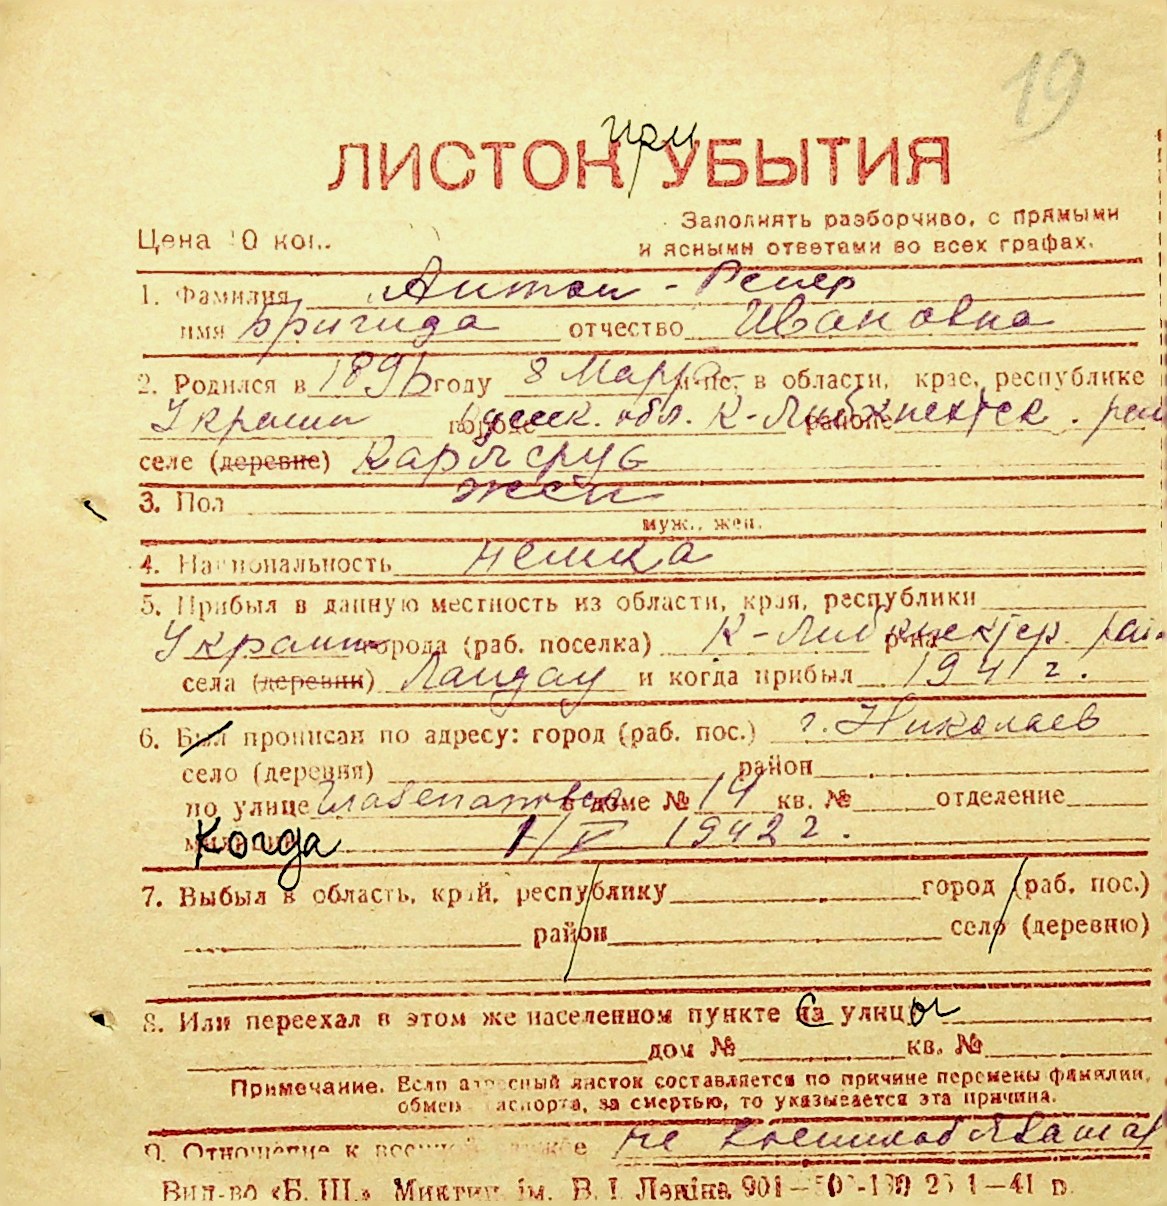 19
при
ЛИСТОК УБЫТИЯ
Заполнять разборчиво, с прямыми
Цена 10 коп.
и ясными ответами во всех графах.
1. Фамилия Антон - Ренер
имя Бригида отчество Ивановна
2. Родился в 1896 году 8 Марта м-це, в области, крае, республике
Украин городе Одесск. обл. К-Либкнехтск. районе рай
селе (деревне) Карлсруе
3. Пол жен
муж., жен.
4. Национальность немка
5. Прибыл в данную местность из области, края, республики
Украин города (раб. поселка) К-Либкнехтср. р-на рай
села (деревни) Ландау и когда прибыл 1941 г.
6. Был прописан по адресу: город (раб. пос.) г. Николаев
село (деревня) район
по улице в доме № 14 кв. № отделение
милиции Когда 1/V 1942 г.
7. Выбыл в область, край, республику город (раб. пос.)
район село (деревню)
8. Или переехал в этом же населенном пункте на с улицы
дом № кв. №
Примечание. Если адресный листок составляется по причине перемены фамилии,
обмен паспорта, за смертью, то указывается эта причина.
9. Отношение к военной службе не
Вид-во «Б. Ш.» Миктип. ім. В. І. Леніна 901